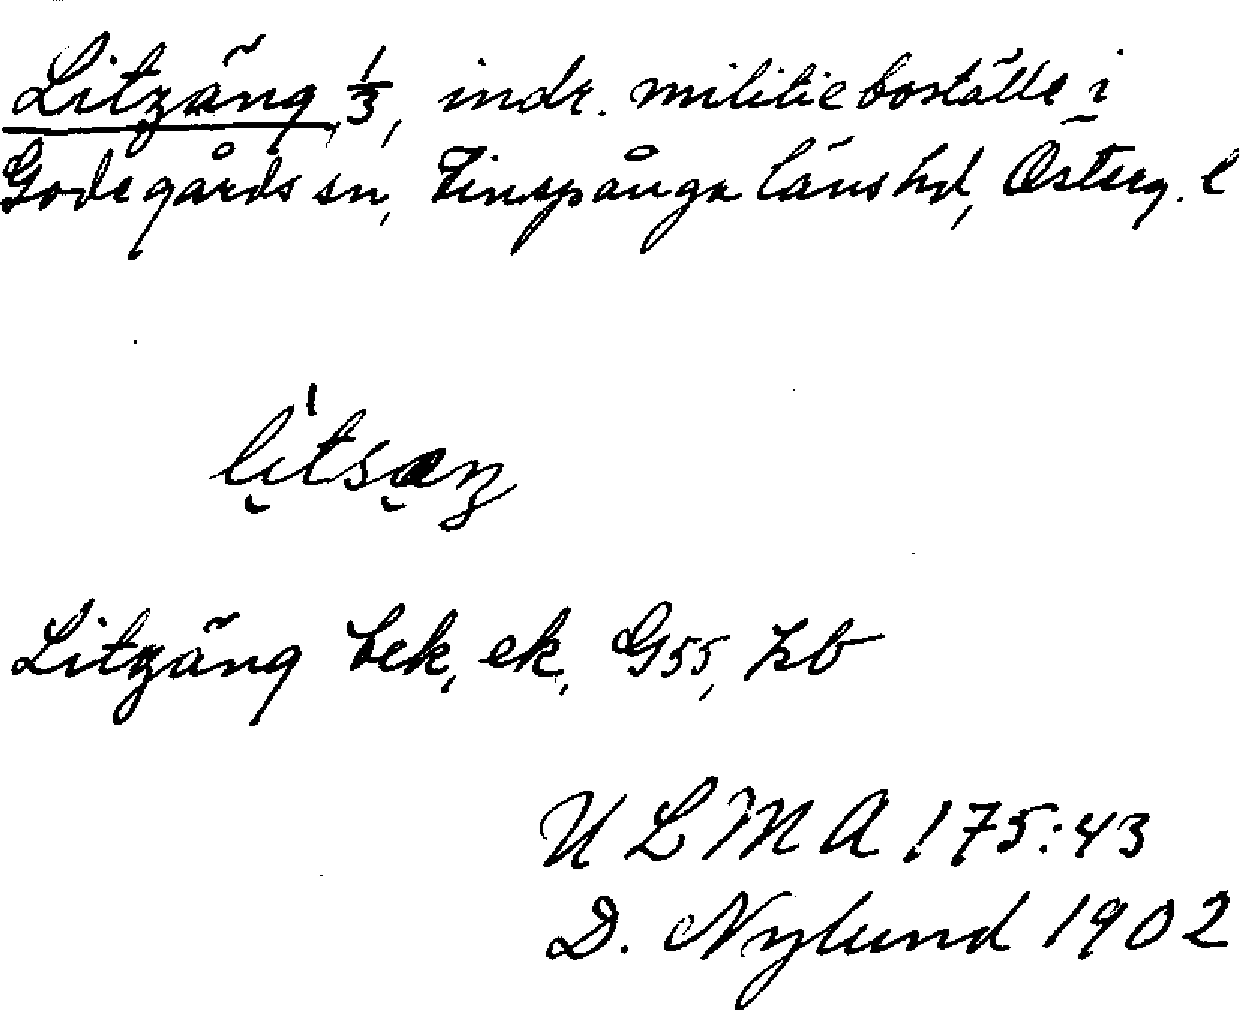 Litzäng 1/3, indr. militieboställe i
Godegårds sn, Finspånga läns hd, Österg. l
Litzäng bek, ek, G55, hb
ULMA 175:43
D. Nylund 1902